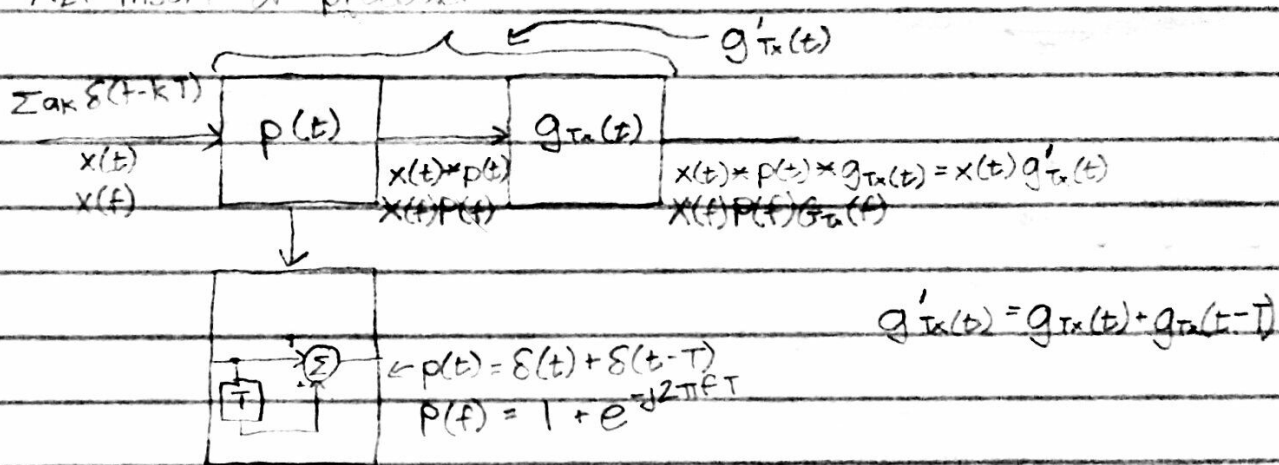 g'Tx(t)
Σak δ(t-kT)
p(t)
gTx(t)
x(t)
x(t)*p(t)
x(t)*p(t)*gTx(t)=x(t)g'Tx(t)
X(f)
X(f)P(f)
X(f)P(f)GTx(f)
g'Tx(t)=gTx(t)+gTx(t-T)
Σ
←p(t)=δ(t)+δ(t-T)
T
P(f) = 1 + e^-j2πfT